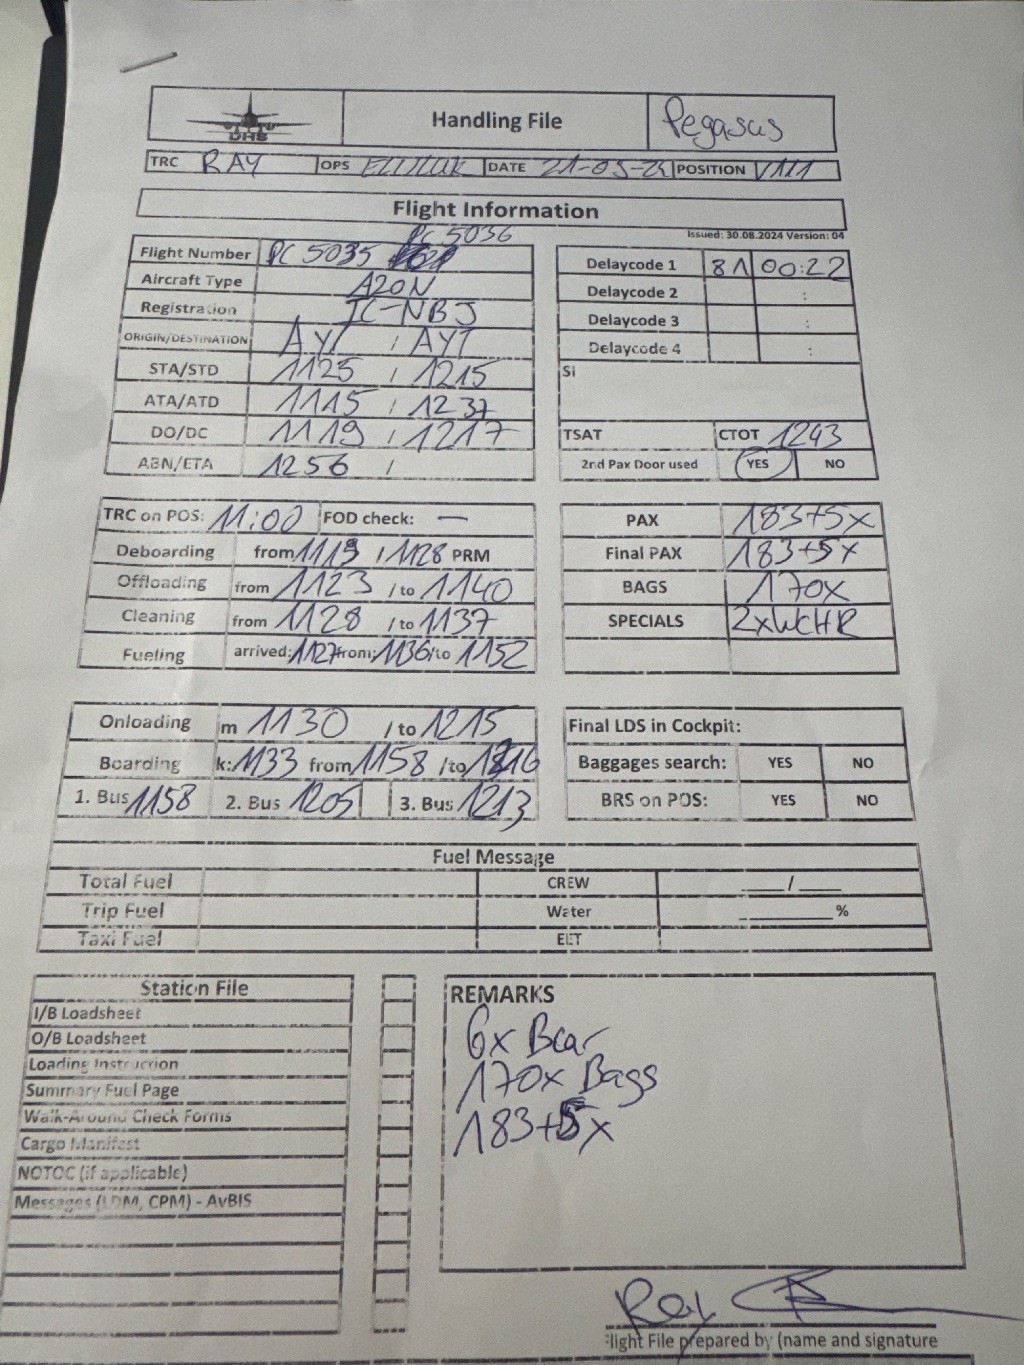 DHS
Handling File
Pegasus
TRC RAY OPS DATE 21-05-25 POSITION V111
Flight Information
PC 5036
Issued: 30.08.2024 Version: 04
Flight Number PC 5035
Aircraft Type A20N
Registration TC-NBJ
ORIGIN/DESTINATION AYT / AYT
STA/STD 1125 / 1215
ATA/ATD 1115 / 1237
DO/DC 1119 / 1217
ABN/ETA 1256 /
Delaycode 1 81 00:22
Delaycode 2 :
Delaycode 3 :
Delaycode 4 :
Si
TSAT CTOT 1243
2nd Pax Door used YES NO
TRC on POS: 11:00 FOD check: —
Deboarding from 1119 / 1128 PRM
Offloading from 1123 / to 1140
Cleaning from 1128 / to 1137
Fueling arrived: 1127 from: 1136 /to 1152
PAX 183+5x
Final PAX 183+5x
BAGS 170x
SPECIALS 2xWCHR
Onloading m 1130 / to 1215
Boarding k: 1133 from 1158 /to 1216
1. Bus 1158 2. Bus 1205 3. Bus 1213
Final LDS in Cockpit:
Baggages search: YES NO
BRS on POS: YES NO
Fuel Message
Total Fuel CREW ___/___
Trip Fuel Water ______%
Taxi Fuel EET
Station File
I/B Loadsheet
O/B Loadsheet
Loading Instruction
Summary Fuel Page
Walk-Around Check Forms
Cargo Manifest
NOTOC (if applicable)
Messages (LDM, CPM) - AvBIS
REMARKS
6x Bcar
170x Bags
183+5x
Ray
Flight File prepared by (name and signature